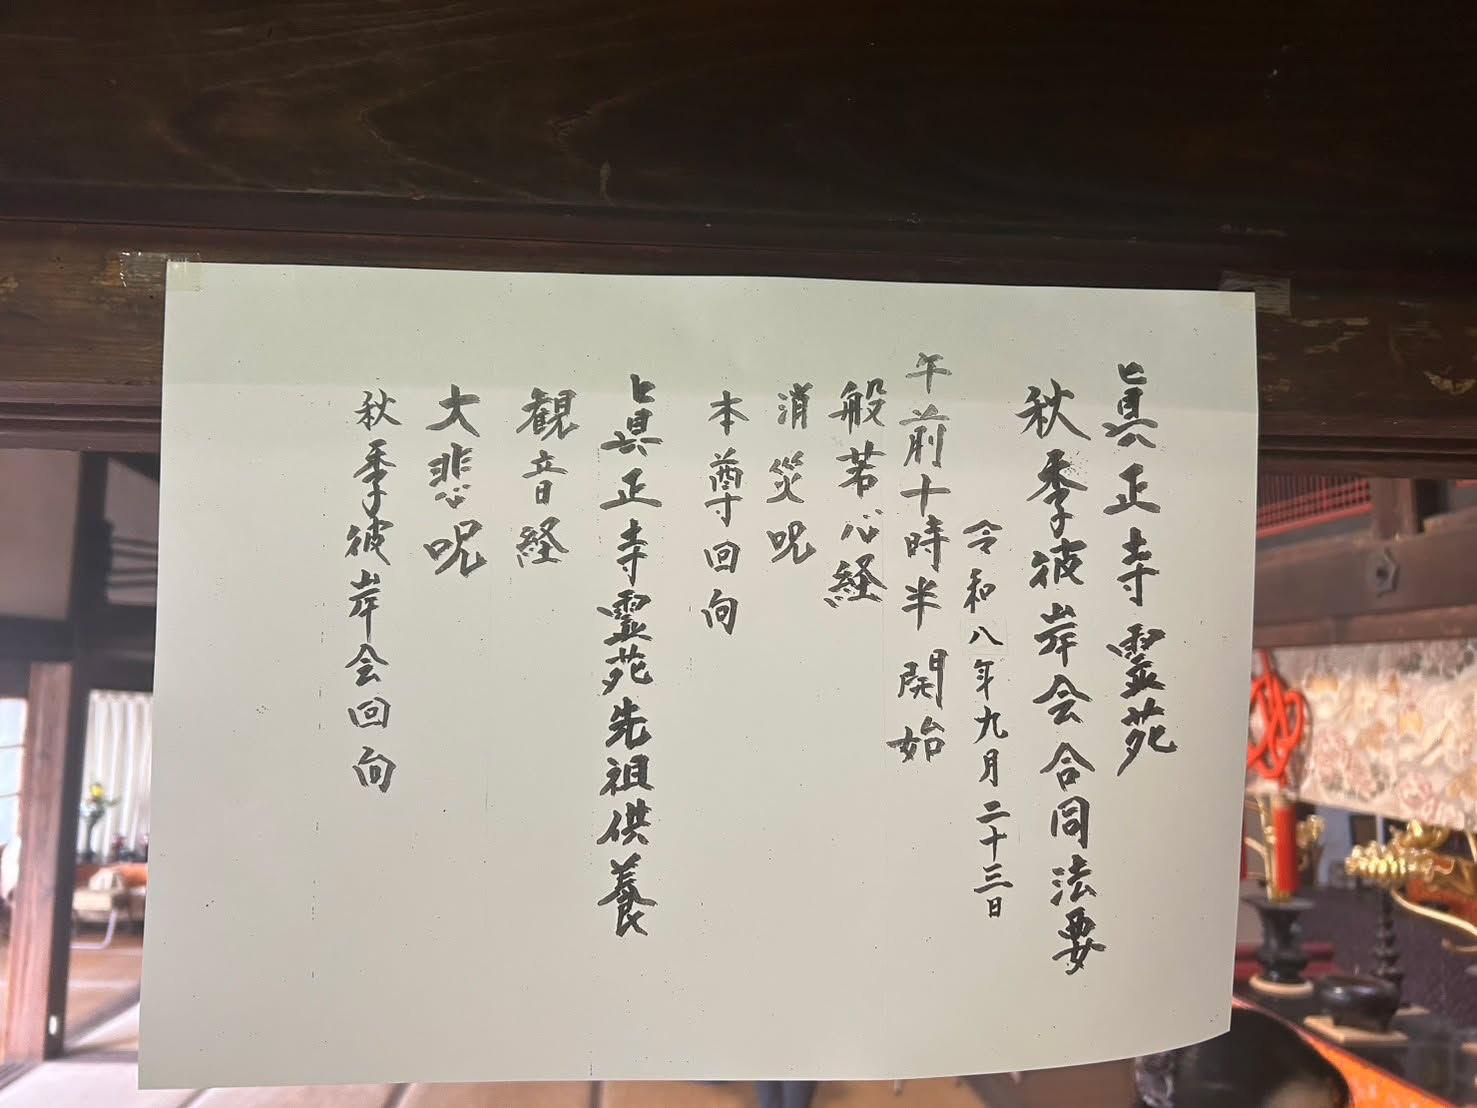 眞正寺霊苑
秋季彼岸会合同法要
令和八年九月二十三日
午前十時半 開始
般若心経
消災呪
本尊回向
眞正寺霊苑先祖供養
観音経
大悲呪
秋季彼岸会回向